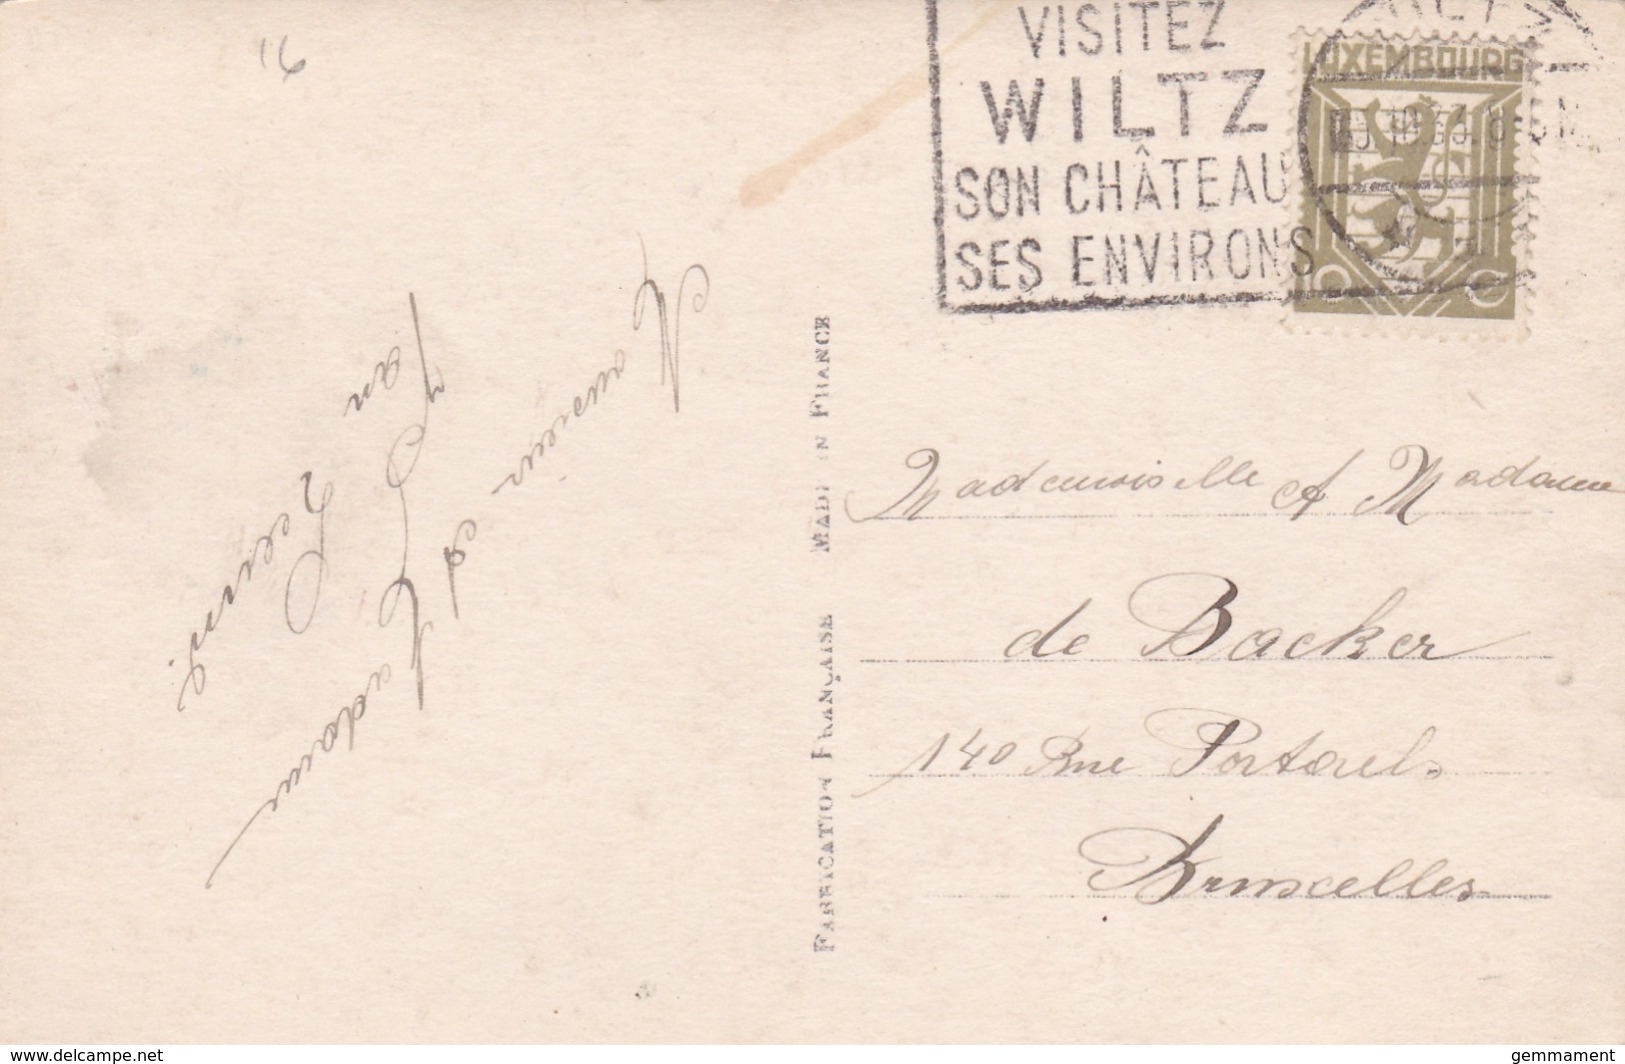 16
VISITEZ
WILTZ
SON CHÂTEAU
SES ENVIRONS
WILTZ
LUXEMBOURG
10 C
Monsieur et Madame
FABRICATION FRANÇAISE MADE IN FRANCE
Mademoiselle & Madame
de Backer
140 Rue Portaels
Bruxelles
www.delcampe.net
gemmament